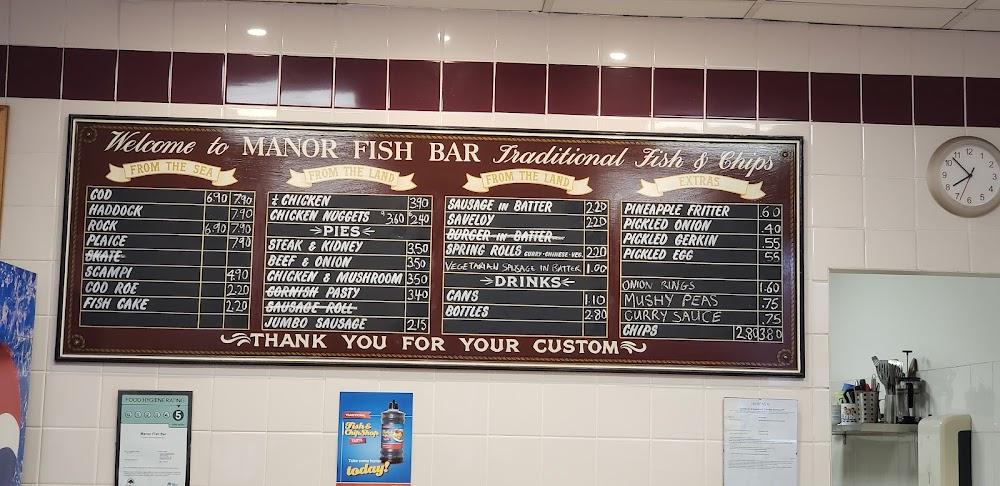 Welcome to MANOR FISH BAR Traditional Fish & Chips
FROM THE SEA
COD 6.90 7.90
HADDOCK 7.90
ROCK 6.90 7.90
PLAICE 7.90
SKATE
SCAMPI 4.90
COD ROE 2.20
FISH CAKE 2.20
FROM THE LAND
¼ CHICKEN 3.90
CHICKEN NUGGETS 6 3.60 4 2.40
PIES
STEAK & KIDNEY 3.50
BEEF & ONION 3.50
CHICKEN & MUSHROOM 3.50
CORNISH PASTY 3.40
SAUSAGE ROLL
JUMBO SAUSAGE 2.15
FROM THE LAND
SAUSAGE IN BATTER 2.20
SAVELOY 2.20
BURGER IN BATTER
SPRING ROLLS CURRY-CHINESE-VEG. 2.20
VEGETARIAN SAUSAGE IN BATTER 1.00
DRINKS
CANS 1.10
BOTTLES 2.80
EXTRAS
PINEAPPLE FRITTER .60
PICKLED ONION .40
PICKLED GERKIN .55
PICKLED EGG .55
ONION RINGS 1.60
MUSHY PEAS .75
CURRY SAUCE .75
CHIPS 2.80 3.80
THANK YOU FOR YOUR CUSTOM
FOOD HYGIENE RATING
5
Manor Fish Bar
TRADITIONAL
Fish &
Chip Shop
Take some home
today!